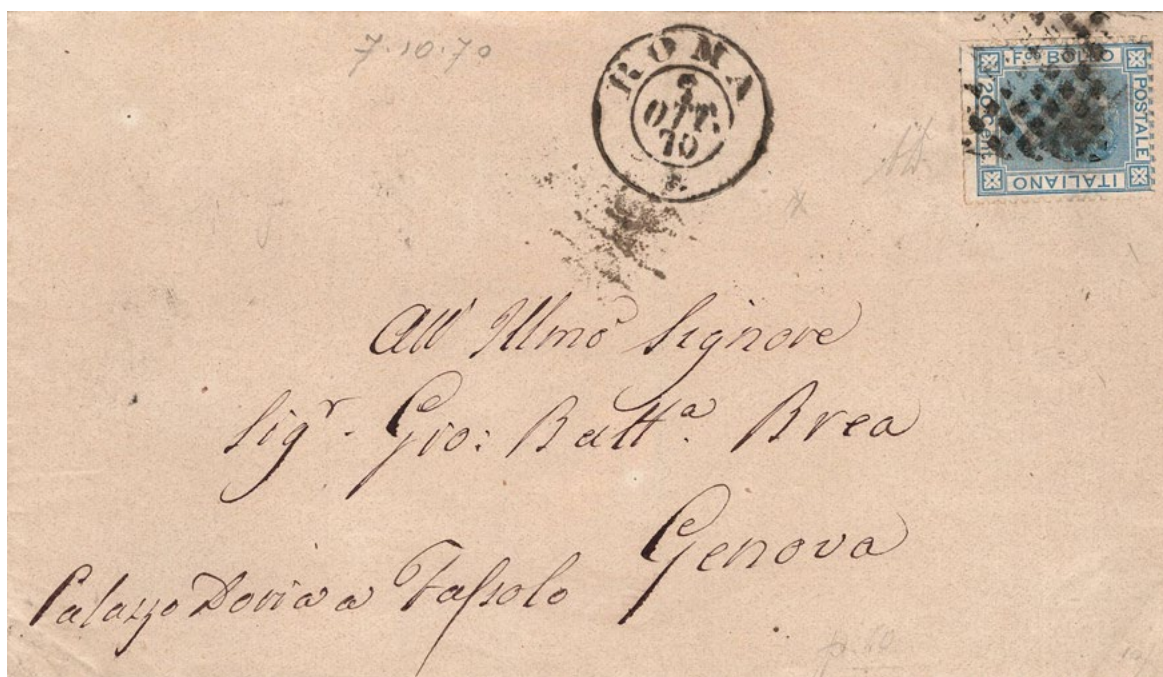 7.10.70
ROMA
7
OTT.
70
F.CO BOLLO
POSTALE
ITALIANO
20 Cent.
All' Illmo Signore
Sigr. Gio: Batta. Brea
Genova
Palazzo Doria a Faſsolo